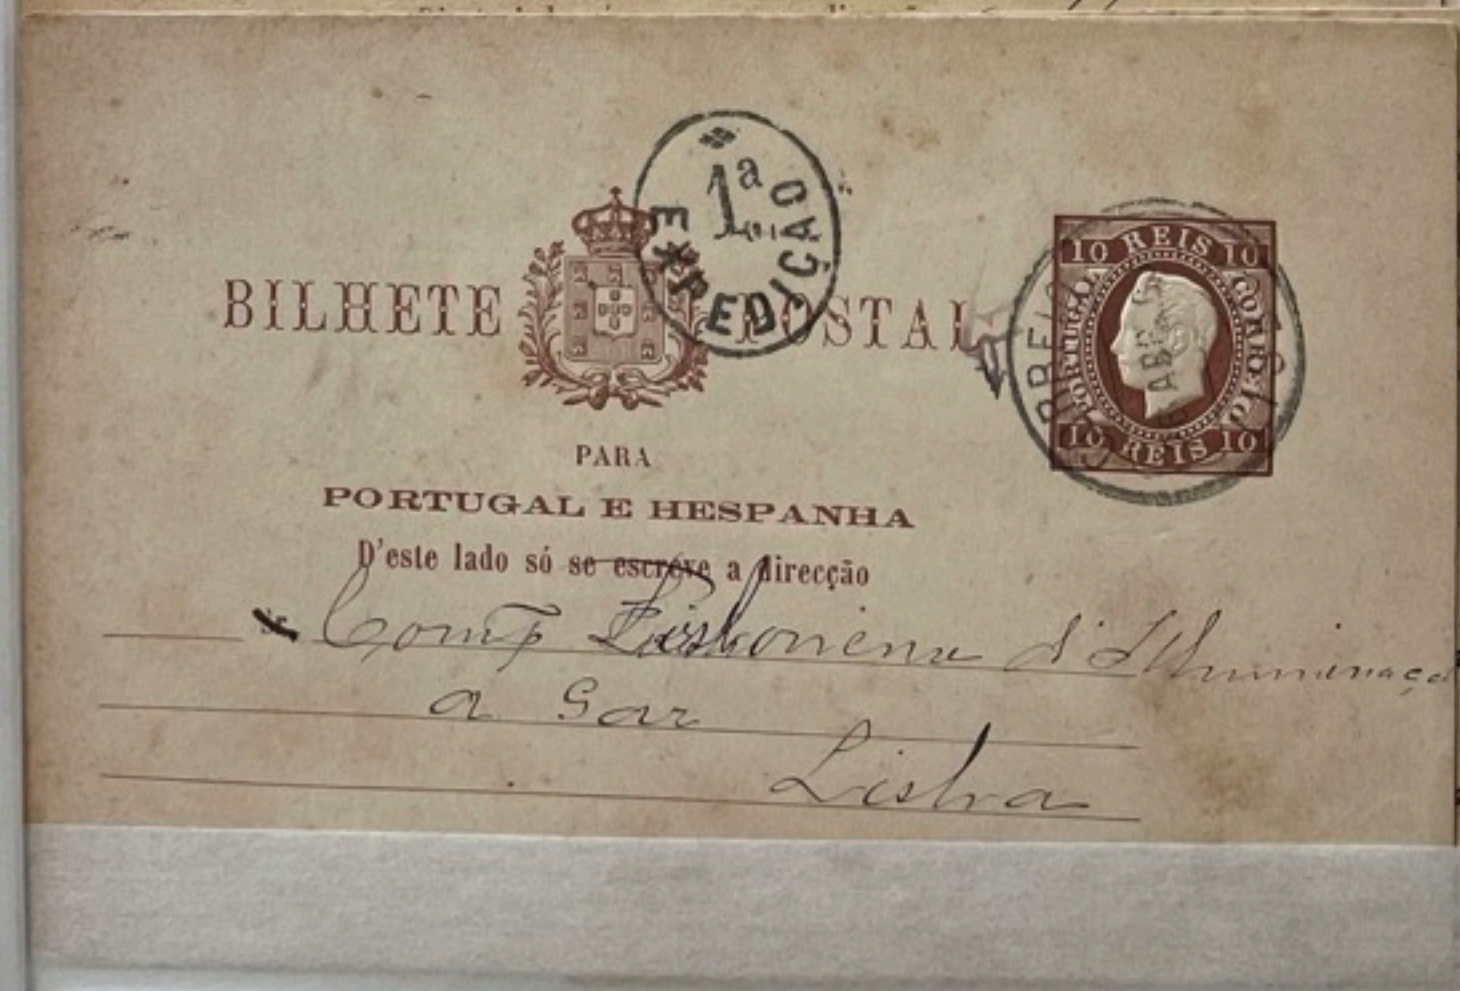 1ª
EXPEDIÇÃO
BILHETE POSTAL
10 REIS 10
PORTUGAL
CORREIO
10 REIS 10
PARA
PORTUGAL E HESPANHA
D'este lado só se escreve a direcção
Comp Lisbonense d'Illuminaçã
a Gaz
Lisboa